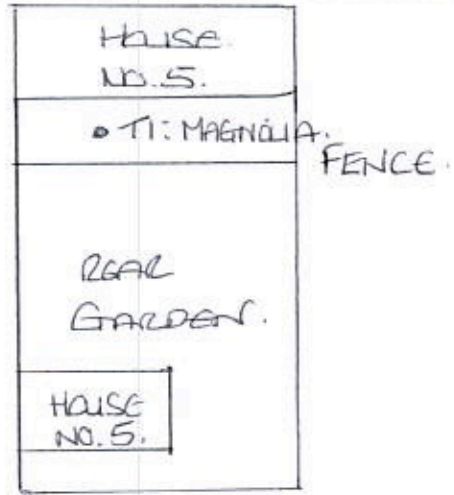 HOUSE
NO. 5.
T1: MAGNOLIA.
FENCE.
REAR
GARDEN.
HOUSE
NO. 5.